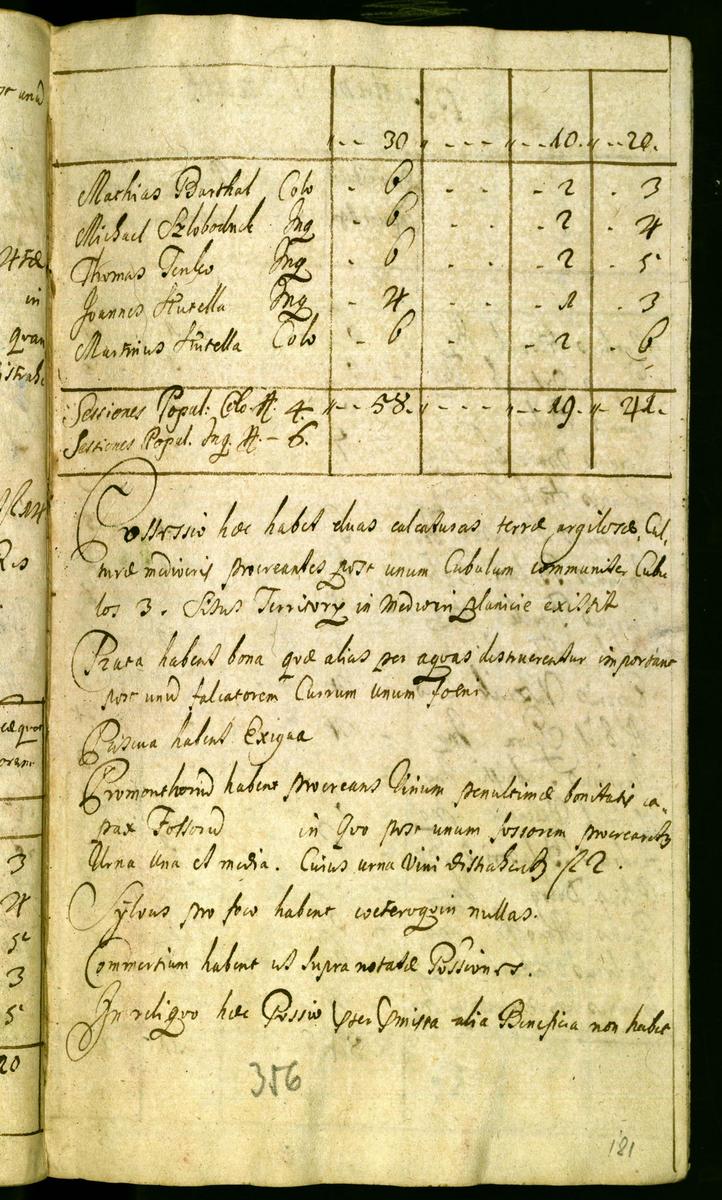 „ - - 30 „ - - - „ - - 10. „ - - 20.
Mathias Barthal Colo - 6 - - - 2 - 3
Michael Szlobodnik Inq - 6 - - - 2 - 4
Thomas Tenko Inq - 6 - - - 2 - 5
Joannes Hutella Inq - 4 - - - 1 - 3
Martinus Hutella Colo - 6 - - - 2 - 6
Sessiones Popul: Colo ff. 4. „ - - 58. „ - - - „ - - 19. „ - 41.
Sessiones Popul. Inq. ff. - 6.
Possessio hæc habet duas calcaturas terræ argilosæ, Cul,
turæ mediocris procreantes post unum Cubulum communiter Cubu
los 3. Situs Territory in mediocri planicie existit
Prata habent bona quæ alias per aquas destruerentur important
post unū falcatorem Currum unum foeni
Pascua habent Exigua
Promonthoriū habent procreans Vinum penultimæ bonitatis ca,
pax Fossorū in Quo post unum fossorem procreantr
Urna una et media. Cuius urna Vini distrahentr f 2 .
Sylvas pro foco habent coeteroqvin nullas.
Commertium habent ut supra notatæ Possiones.
In reliquo hæc Possio præmissa alia Beneficia non habet
356
181
3
4
5
3
5
20